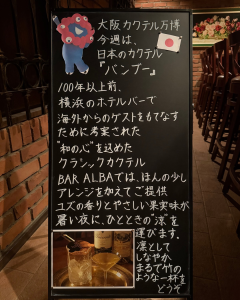 大阪カクテル万博
今週は、
日本のカクテル
『バンブー』
100年以上前、
横浜のホテルバーで
海外からのゲストをもてなす
ために考案された
"和の心"を込めた
クラシックカクテル
BAR ALBAでは、ほんの少し
アレンジを加えてご提供
ユズの香りとやさしい果実味が
暑い夜に、ひとときの"涼"を
運びます。
凛として
しなやか
まるで竹の
ような一杯を
どうぞ